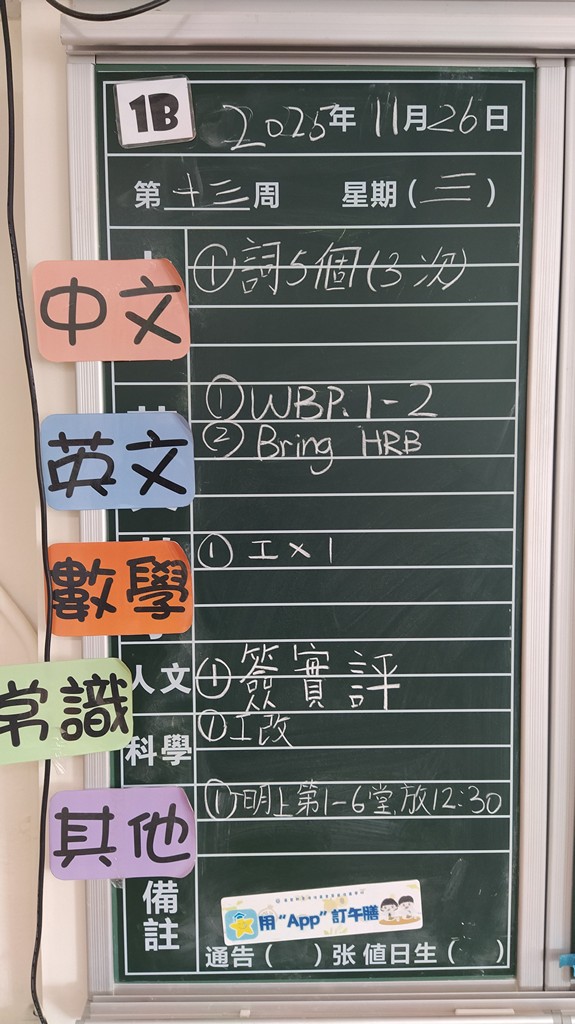 1B
2025年 11月26日
第十三周 星期(三)
中文
①詞5個(3次)
英文
①WBP.1-2
②Bring HRB
數學
①工×1
常識
人文
①簽實評
科學
①工改
其他
①明上第1-6堂,放12:30
備註
用“App”訂午膳
通告( )张 值日生( )